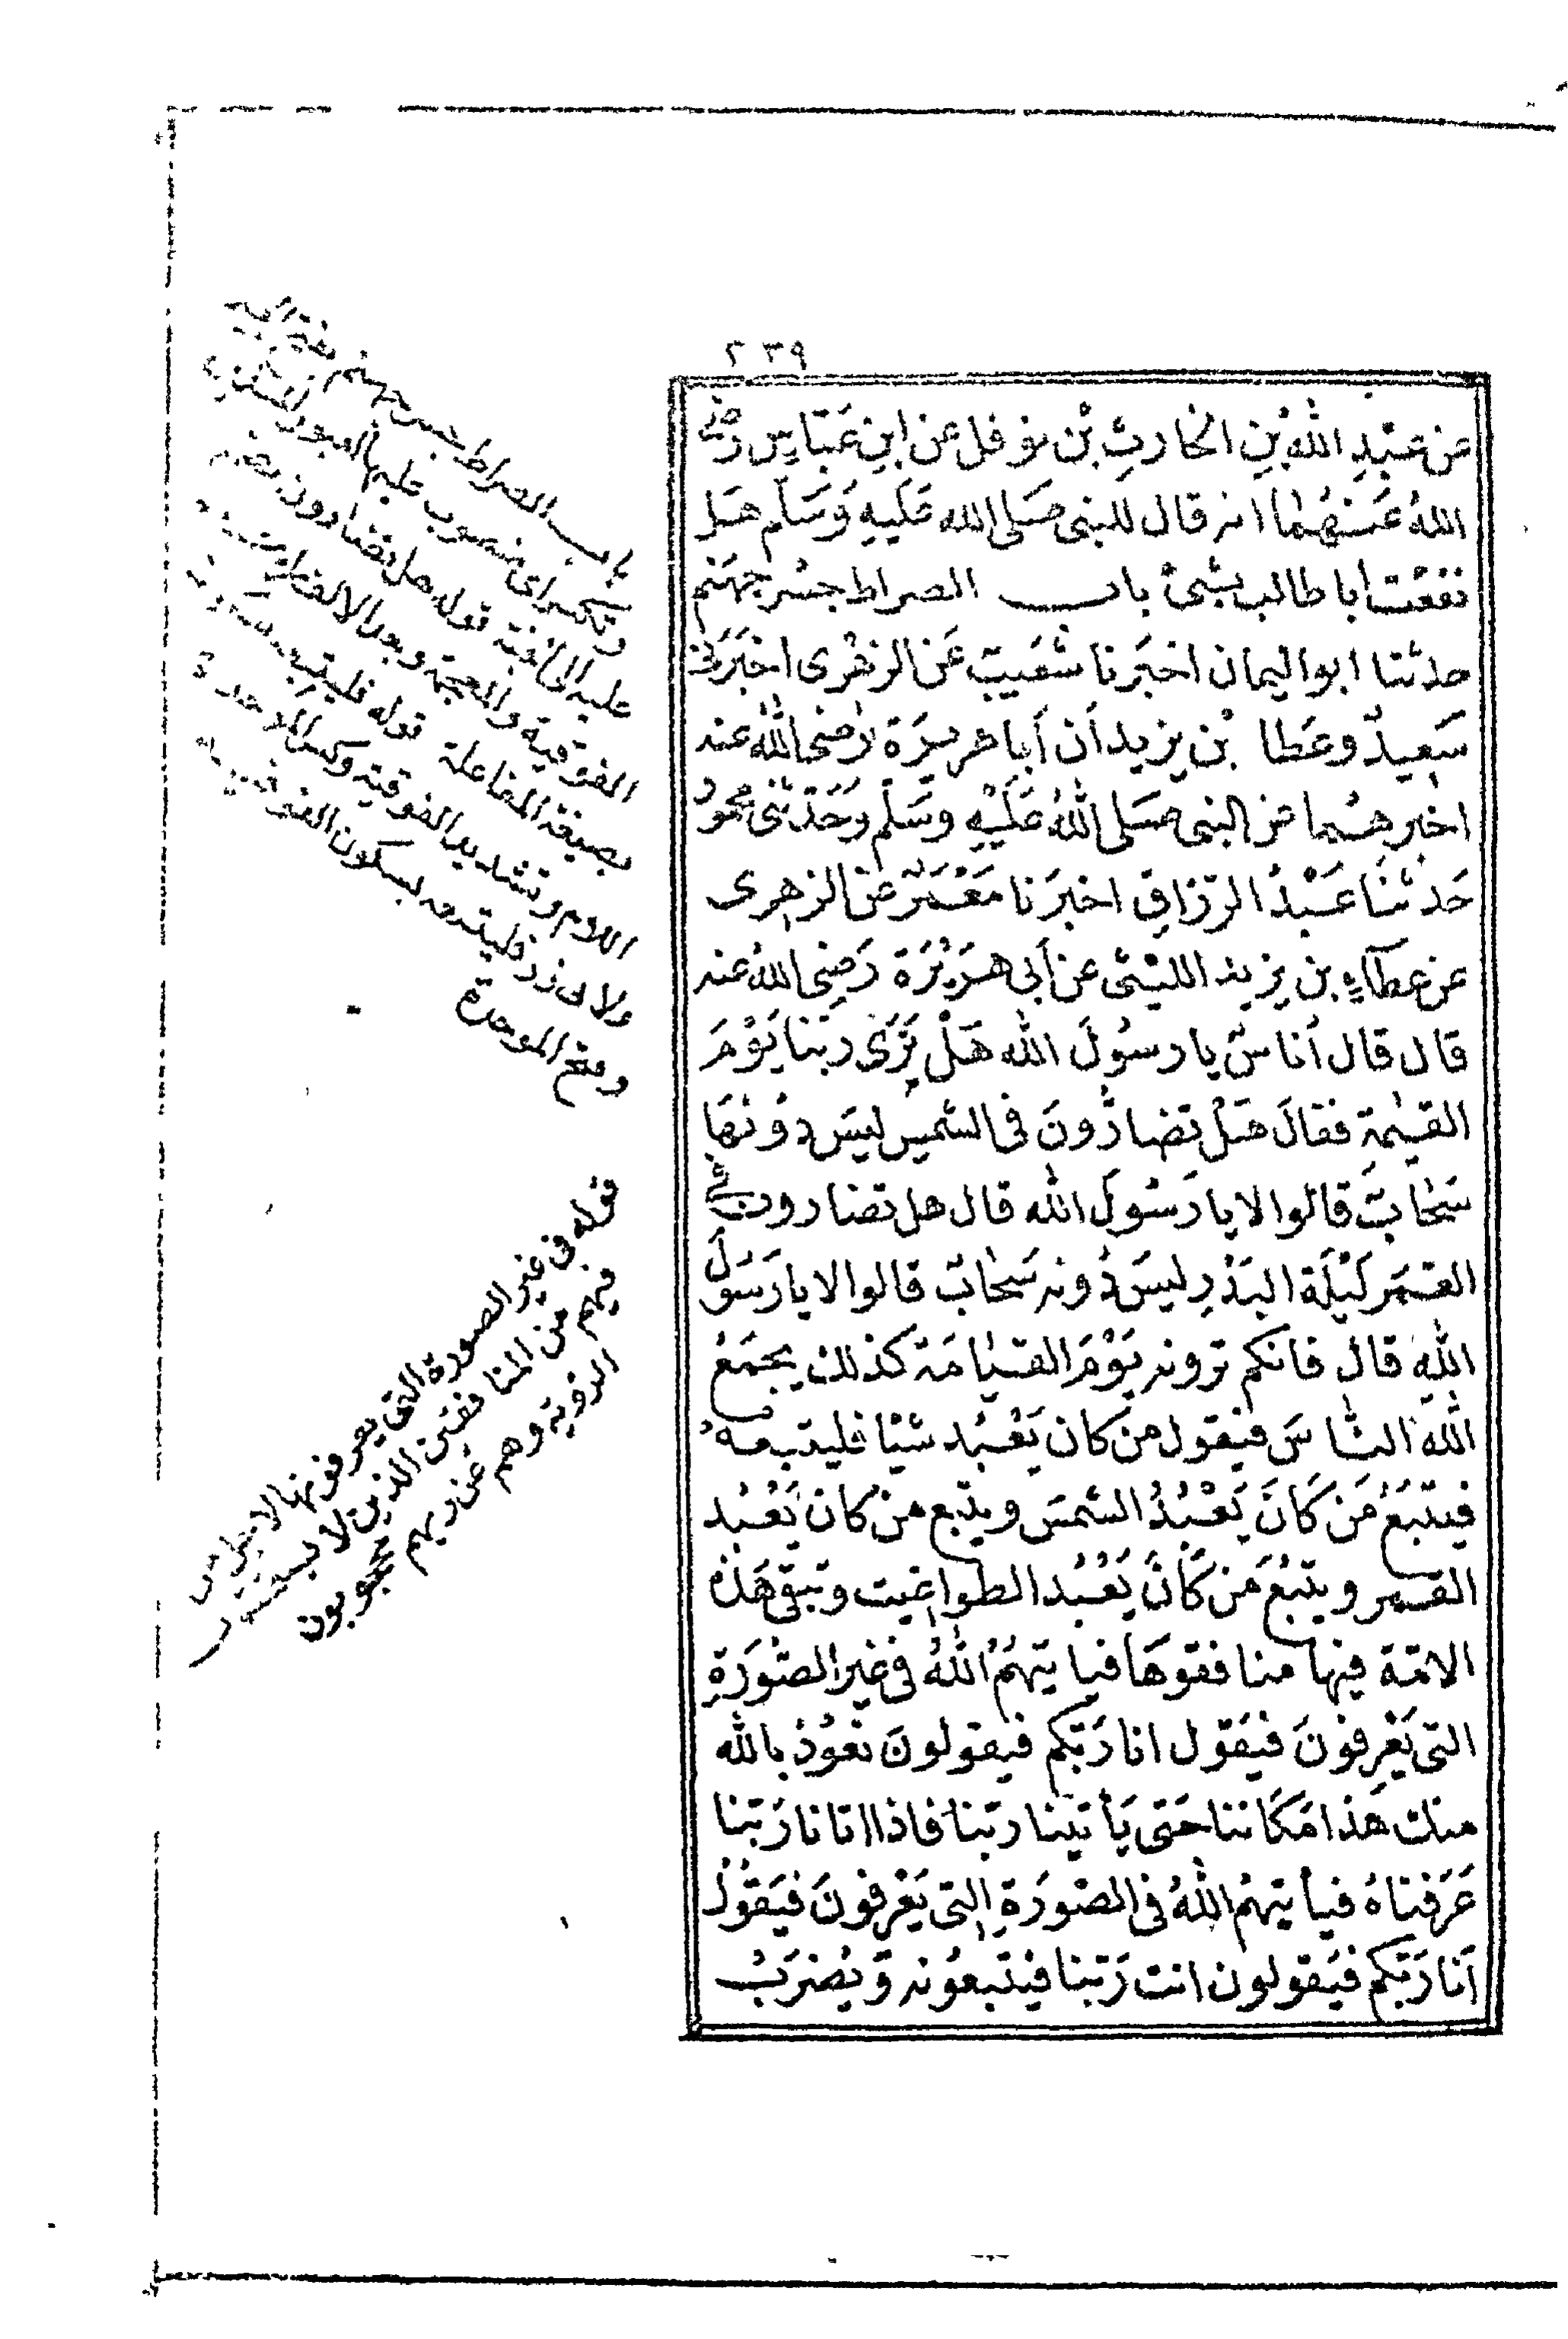 ٢٣٩
عن عَبْدِ اللهِ بْنِ الحارثِ بْن نوفل عن ابنِ عَبَّاسٍ رَضى
اللهُ عَنهُما انه قال للنبى صَلى الله عَلَيهِ وَسَلم هَل
نفعْت ابا طالب بشئ باب الصراط جسْر جهَنم
حدثنا ابو اليمان اخبَرنا شعَيبٌ عَن الزهْرى اخبَرَنى
سَعيدٌ وعَطا بْن يزيد أن أبا هريرَة رضى الله عنه
اخبرهما عن النبى صَلى اللهُ عَلَيْهِ وسَلم وَحَدثنى محمودُ
حَدثنا عَبْدُ الرزاق اخبرَنا مَعْمَرٌ عن الزهرى
عن عطاءِ بن يزيد الليْثى عن أبى هرَيْرَة رَضِى اللهُ عنه
قال قال أناسٌ يا رسُولَ الله هَلْ نَرَى ربنا يَوْمَ
القيٰمةِ فقالَ هَلْ تضارُّونَ فى الشمسِ ليسَ دُونهَا
سَحٰابٌ قالوا لا يا رَسُولَ الله قال هل تضارون فى
القمَر لَيْلَة البَدْرِ ليسَ دُونه سَحٰابٌ قالوا لا يا رَسُولَ
اللهِ قال فانكم ترونه يَوْمَ القيٰامَة كذلك يجمَعُ
الله الناسَ فيقول من كان يَعْبُد شيْا فليتبعهُ
فيتبَعُ مَن كَانَ يَعْبُدُ الشمسَ ويتبع من كان يَعْبُد
القمر ويتبَعُ مَن كَانَ يَعْبُد الطواغيت وتبقى هَذه
الامّة فيها منافقوهَا فيا يتهمُ اللهُ فى غير الصُّورَةِ
التى يَعْرِفونَ فيَقول انا رَبّكم فيقولونَ نعُوذ بالله
منك هَذا مَكَاننا حَتى يَأتينا ربّنا فاذا اتانا رَبّنا
عَرَفناهُ فيأ يتهمُ اللهُ فى الصُّورَةِ التى يَعْرفونَ فيَقُولُ
أنا رَبّكم فيَقولون انت رَبّنا فيتبعُونه وَيُضرَبُ
باب الصراط جسر جهنم بفتح الجيم
وتكسر اى منصوب عليها لعبور المسلمين
عليه الى الجنة قوله هل تضارون بضم
الفوقية والمعجمة وبعد الالف راء مشددة
بصيغة المفاعلة قوله فليتبعه بسكون
اللام وتشديد الفوقية وكسر الموحدة
ولابى ذر فليتبعه بسكون الفوقية
وفتح الموحدة
قوله فى غير الصورة التى يعرفونها لاجل من
فيهم من المنافقين الذين لا يستحقون
الرؤية وهم عن ربهم محجوبون